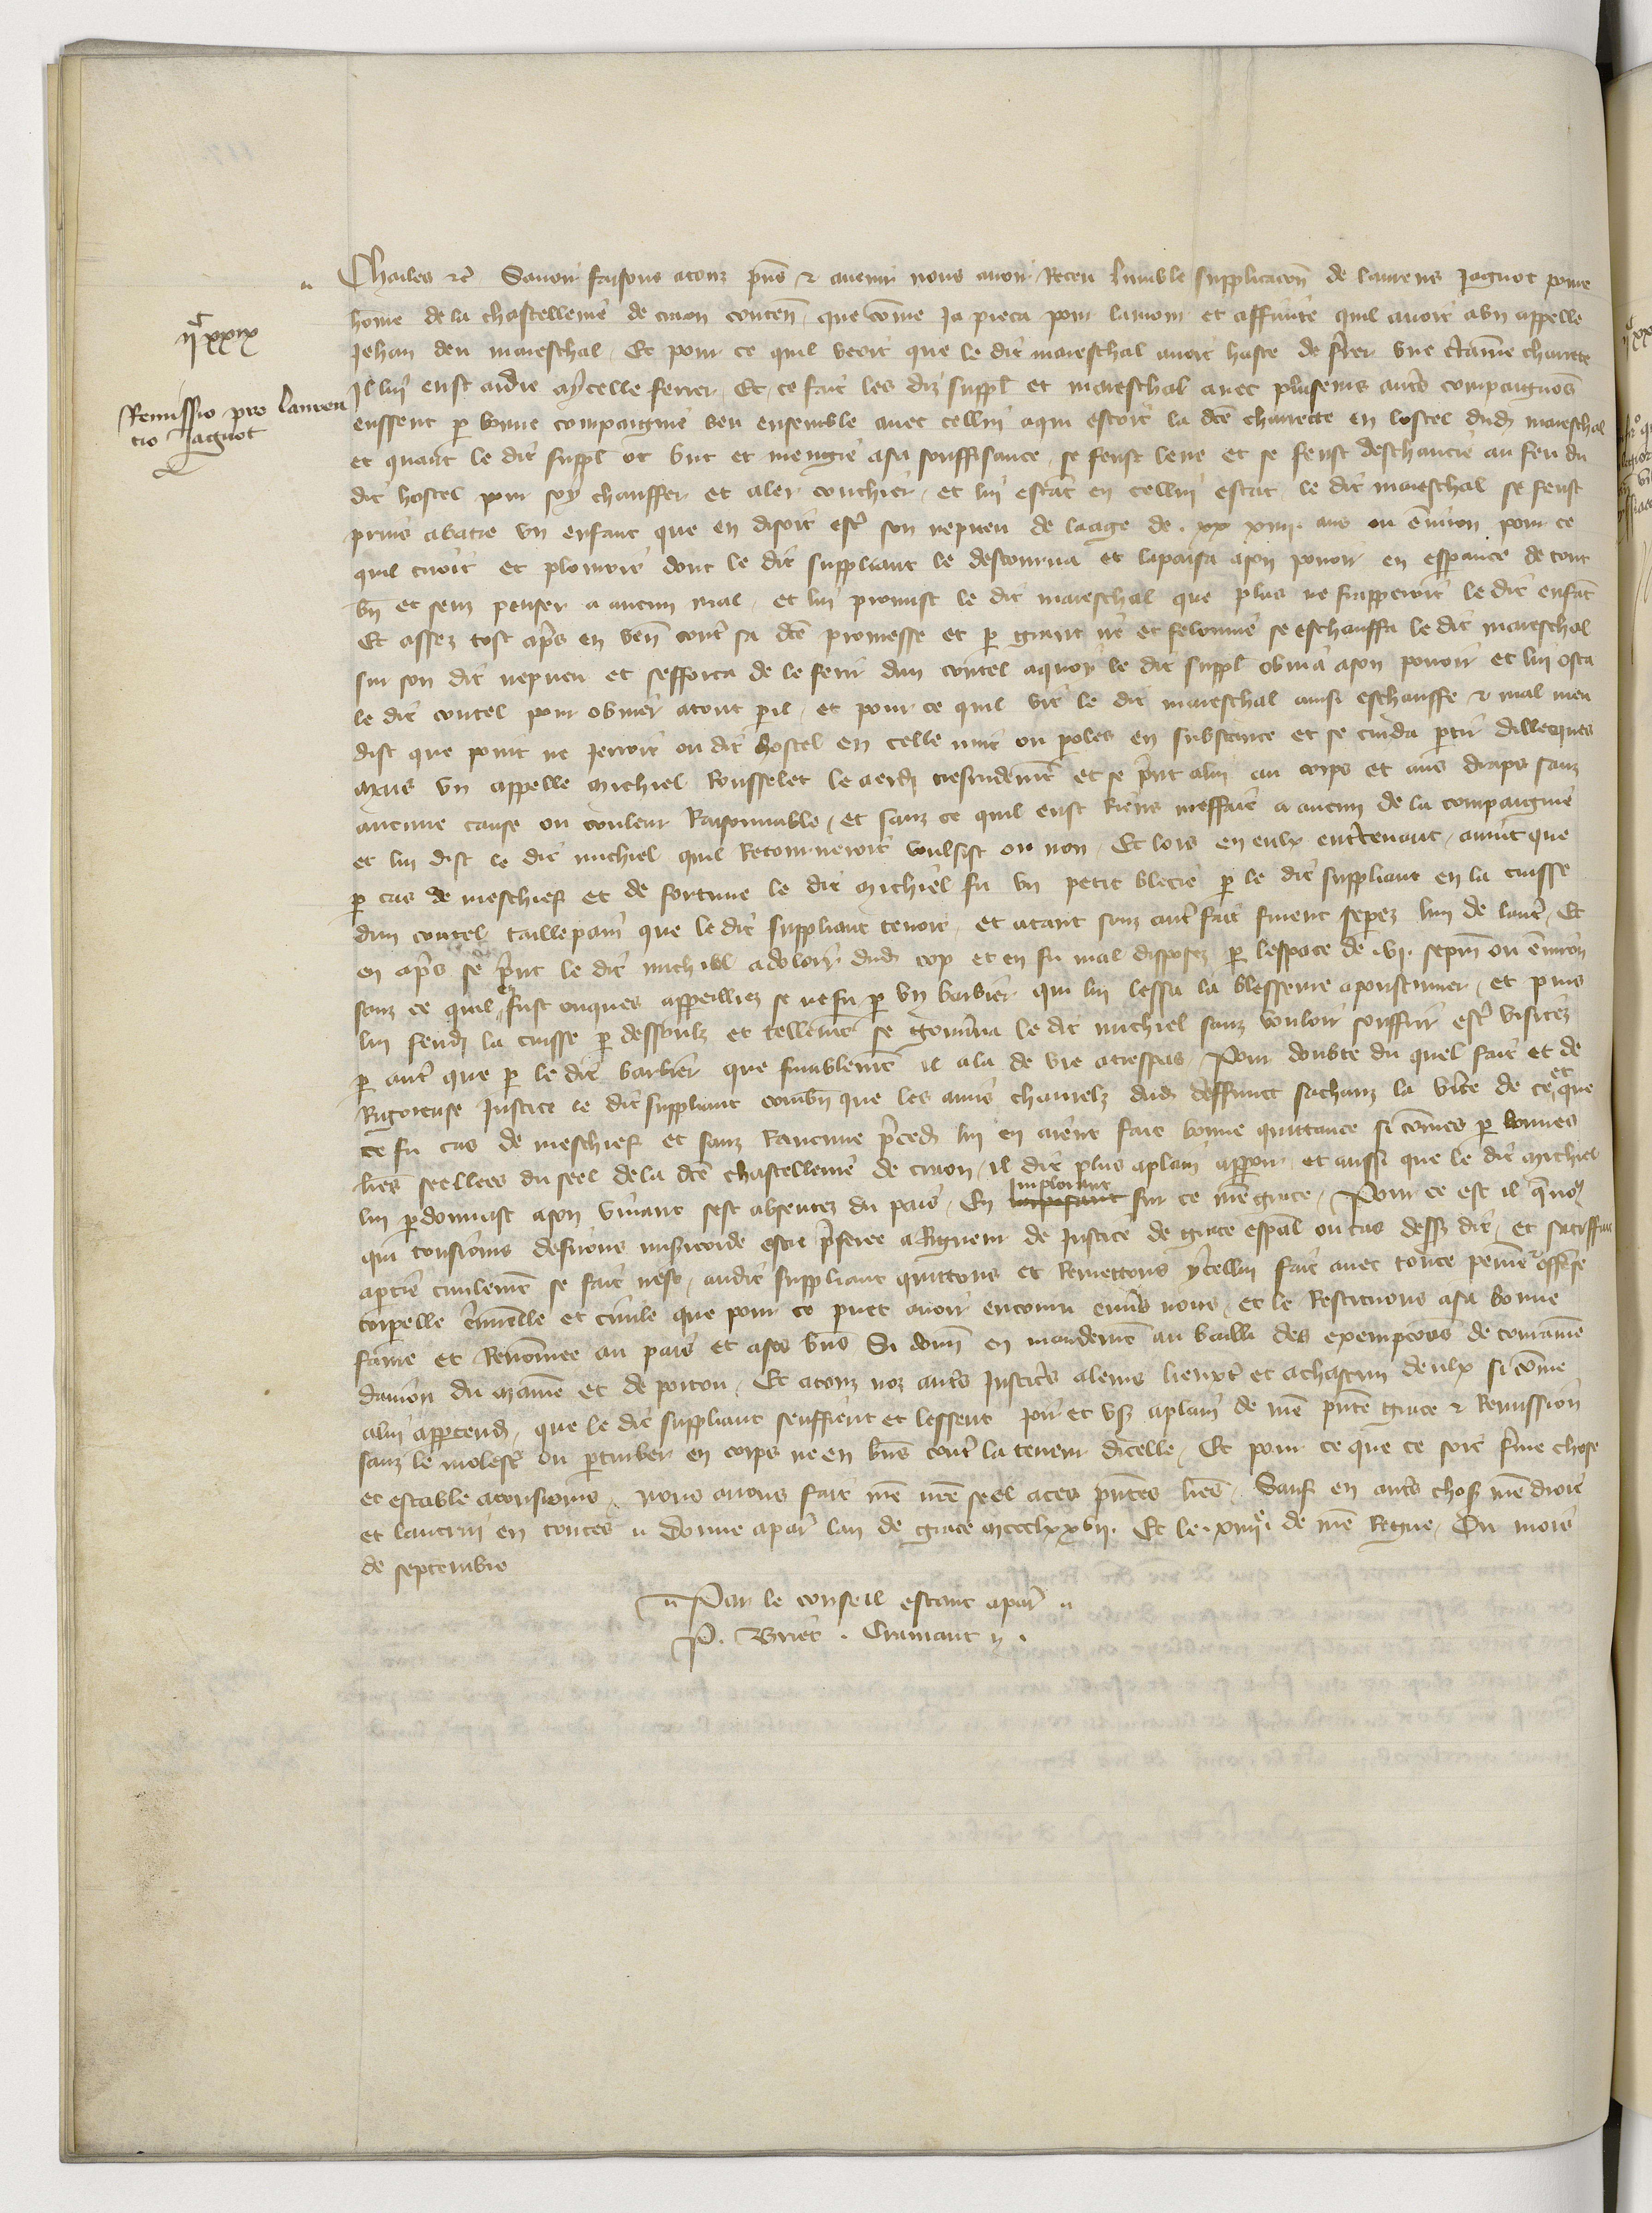 IIc XXXIX
Remissio pro Lauren
cio Jaguot
Charles etc Savoir faisons a touz pns et avenir nous avoir receu lumble supplicacon de Laurens Jaguot povre
home de la chastellenie de Craon conten que come ja pieca pour lamour et affinite quil avoit a un appelle
Jehan den mareschal Et pour ce quil veoit que le dit mareschal avoit haste de frer une ctaine charrette
Il lui eust aidie a ycelle ferrer Et ce fait les diz suppl et mareschal avec pluseurs auts compaignos
eussent p bonne compaignie beu ensemble avec cellui a qui estoit la dce charrette en lostel dud mareschal
et quant le dit suppl ot but et mengie a sa souffisance se feust leve et se feust deschaucie au feu du
dit hostel pour soy chauffer et aler couchier et lui estat en cellui estat le dit mareschal se feust
prins a batre un enfant que en disoit estr son nepveu de laage de xx xiiii ans ou environ pour ce
quil crioit et plouroit dont le dit suppliant le destourna et lapaisa a son povoir en espance de tout
bn et senz penser a aucun mal et lui promist le dit mareschal que plus ne frapperoit le dit enfat
Et assez tost aps en ven cont sa dce promesse et p grant ire et felonnie se eschauffa le dit mareschal
sur son dit nepveu et sefforca de le ferir dun coutel a quoy le dit suppl obvia a son povoir et lui osta
le dit coutel pour obvier a tout pil et pour ce quil vit le dit mareschal ainsi eschauffe et mal meu
dist que point ne jerroit ou dit hostel en celle nuit ou poles en substance et se cuida ptir dillecques
mais un appelle Michiel Rousselet le aerd et se print a lui au corps et aus draps sanz
aucune cause ou couleur raisonnable et sanz ce quil eust riens meffait a aucun de la compaignie
et lui dist le dit Michiel quil retourneroit voulsist ou non Et lors en eulx entretenant avint que
p cas de meschief et de fortune le dit Michiel fu un petit blecie p le dit suppliant en la cuisse
dun coutel taillepain que le dit suppliant tenoit et atant sanz autr fait furent sepez lun de lautr Et
en aps se prnt le dit Michiel a doloir dud cop et en fu mal disposez p lespace de vi sepm ou environ
sanz ce quil en fust onques appeilliez se ne fu p un barbier qui lui lessa la blesseure apoustumer et puis
lui fendi la cuisse p dessoubz et tellemt se gouvna le dit Michiel sanz vouloir souffrir estr visitez
p autr que p le dit barbier que finablemt il ala de vie a trespas Pour doubte du quel fait et de
rigoreuse justice le dit suppliant combn que les amis charnelz dud deffunct sachanz la vite de ce et que
ce fu cas de meschief et sanz rancune preced lui en aient fait bonne quittance si comes p bonnes
lres seellees du seel de la dce chastellenie de Craon il dit plus a plain apparoir et aussi que le dit Michiel
lui pdonnast a son vivant sest absentez du pais En implorant sur ce nre grace Pour ce est il que nous
qui tousiours desirons misericorde estre preferee a rigueur de justice de grace espal ou cas dessus dit et satiffac
a ptie civilemt se fait nest audit suppliant quittons et remettons ycellui fait avec toute peine offense
corpelle criminelle et civile que pour ce puet avoir encouru envs nous et le restituons a sa bonne
fame et renommee au pais et a ses bns Si donn en mandemt au bailli des exempcons de Touraine
danjou du Maine et de Poitou Et a touz noz auts justics a leurs lieuxt et a chascun deulx si come
a lui apptend que le dit suppliant seuffrent et lessent joir et us a plain de nre pnte grace et remission
sanz le molestr ou ptourber en corps ne en bns contr la teneur dicelle Et pour ce que ce soit ferme chose
et estable a tousiours nous avons fait mre nre seel a ces pntes lres Sauf en auts chos nre droit
et lautrui en toutes Donne a Paris lan de grace mccclxxvii Et le xiiiie de nre regne Ou mois
de septembre
Par le conseil estant a Paris
P. Briet . Cramant ii .